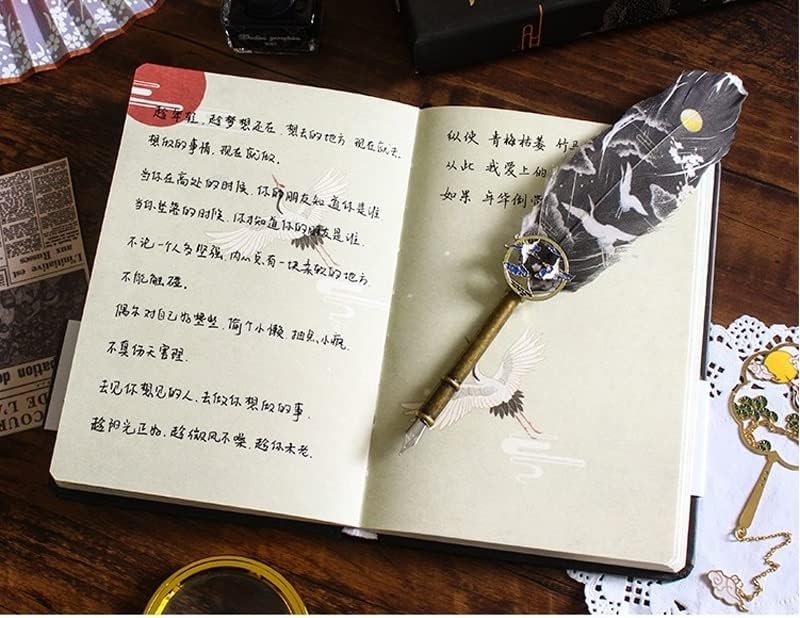 趁年轻，趁梦想还在，想去的地方，现在就去。
想做的事情，现在就做。
当你在高处的时候，你的朋友知道你是谁
当你坠落的时候，你才知道你的朋友是谁。
不论一个人多坚强，内心总有一块柔软的地方
不能触碰。
偶尔对自己好些些，偷个小懒，抽点小疯
不算伤天害理.
去见你想见的人，去做你想做的事，
趁阳光正好，趁微风不噪，趁你未老.
纵使 青梅枯萎 竹马
从此 我爱上的
如果 年华倒带
L'initiative est
aux Russes